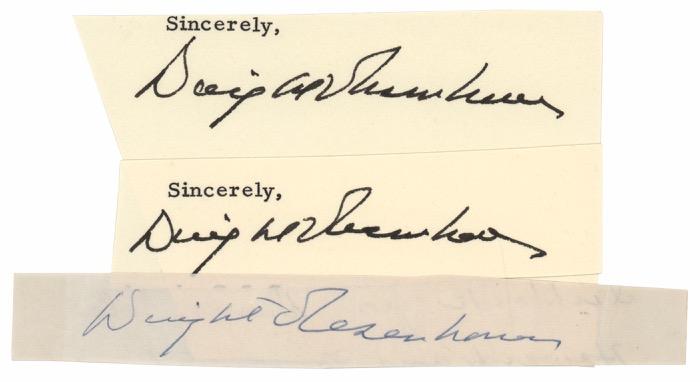 Sincerely,
Dwight D Eisenhower
Sincerely,
Dwight D Eisenhower
Dwight D Eisenhower